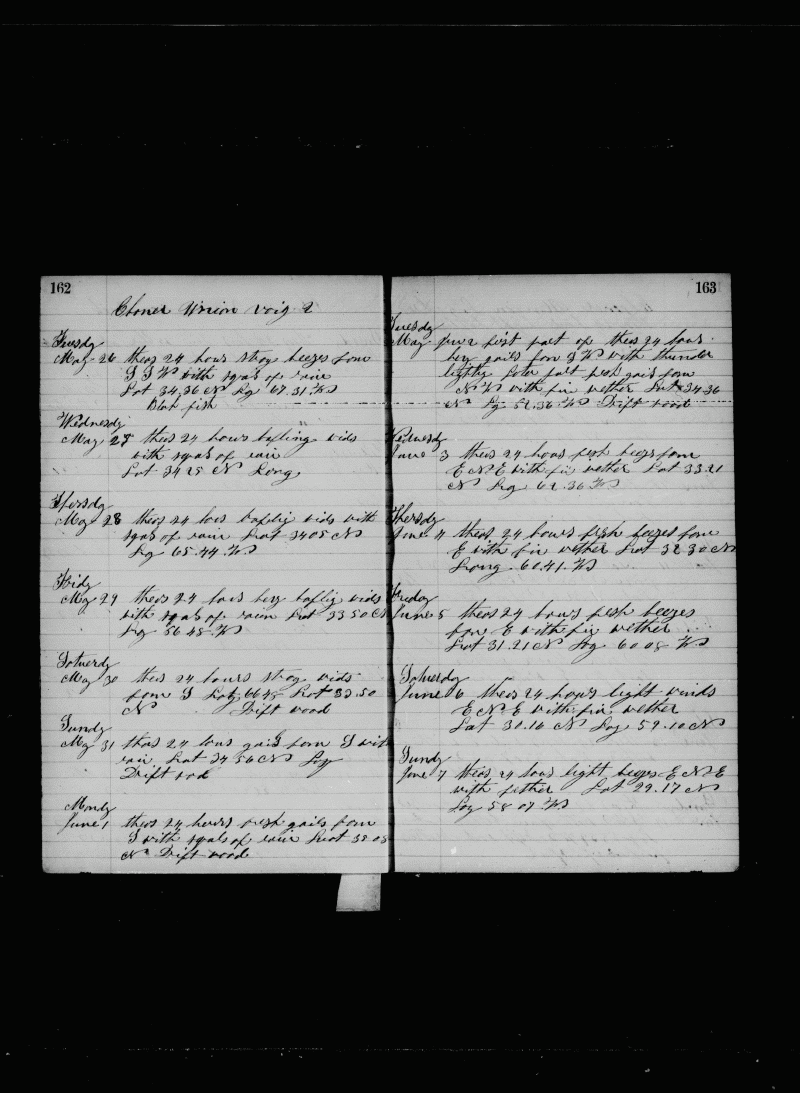 162
Choner Union voig 2
Tusdy
May 26 theos 24 hours strog beezes fom
S S W with sqals of rain
Lat 34.36 N Lg 67.31 W
Blak fish
Wednesdy
May 27 theos 24 hours bafling vids
with sqals of rain
Lat 34 25 N Long
Thorsdy
May 28 theos 24 hours baflig vids with
sqals of rain Lat 34 05 N
Lg 65.44 W
Fridy
May 29 theos 24 hours hevy baflig vids
with sqals of rain Lat 33 50 N
Lg 56 45 W
Saturdy
May 30 theos 24 hours strog vids
fom S Log 66 45 Lat 33.50
N Drift wood
Sundy
May 31 theos 24 hours gails fom S with
rain, Lat 34 56 N Log
Drift
Mondy
June 1 theos 24 hours fresh gails fom
S with sqals of rain Lat 35 05
N Drift wood
163
Tuesdy
2 first part of theos 24 hours
hevy gails fom S W with thunder
lightig later part fresh gails fom
N W with fin wether Lat 34 36
N Lg 51.36 W Drift wood
Wednesdy
June 3 theos 24 hours fresh beezs fom
E N E with fin wether Lat 33.21
N Lg 61.36 W
Thersdy
June 4 theos 24 hours fresh beezes fom
E with fin wether Lat 32 30 N
Long 60.41 W
Friday
June 5 theos 24 hours fresh beezes
fom E with fin wether
Lat 31.21 N Log 60 05 W
Saturdy
June 6 theos 24 hours light winds
E N E with fin wether
Lat 30.16 N Log 59.10 N
Sundy
June 7 theos 24 hours light beezes E N E
with wether Lat 29.17 N
Log 58 07 W